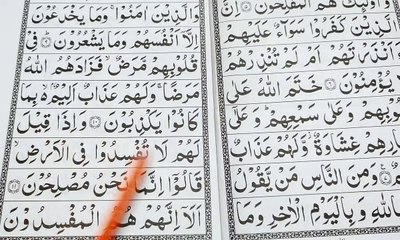 وَاُولٰٓئِكَ هُمُ الْمُفْلِحُوْنَ ۝ اِنَّ
كَفَرُوْا سَوَآءٌ عَلَيْهِمْ
ءَاَنْذَرْتَهُمْ اَمْ لَمْ تُنْذِرْهُمْ
يُؤْمِنُوْنَ ۝ خَتَمَ اللّٰهُ عَلٰى
وَعَلٰى سَمْعِهِمْ ؕ وَعَلٰٓى
غِشَاوَةٌ وَّلَهُمْ عَذَابٌ
وَمِنَ النَّاسِ مَنْ يَّقُوْلُ
بِاللّٰهِ وَبِالْيَوْمِ الْاٰخِرِ وَمَا
وَالَّذِيْنَ اٰمَنُوْا ۚ وَمَا يَخْدَعُوْنَ
اِلَّاۤ اَنْفُسَهُمْ وَمَا يَشْعُرُوْنَ ۝ فِىْ
قُلُوْبِهِمْ مَّرَضٌ ۙ فَزَادَهُمُ اللّٰهُ
مَرَضًا ۚ وَلَهُمْ عَذَابٌ اَلِيْمٌۢ ۙ بِمَا
كَانُوْا يَكْذِبُوْنَ ۝ وَاِذَا قِيْلَ
لَهُمْ لَا تُفْسِدُوْا فِى الْاَرْضِ ۙ
قَالُوْۤا اِنَّمَا نَحْنُ مُصْلِحُوْنَ ۝
اَلَاۤ اِنَّهُمْ هُمُ الْمُفْسِدُوْنَ